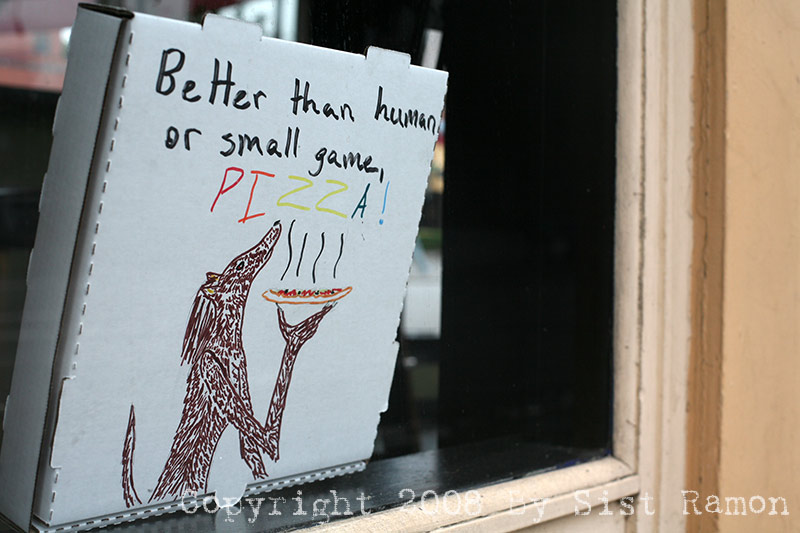 Better than human
or small game,
PIZZA!
Copyright 2008 by Sist Ramon